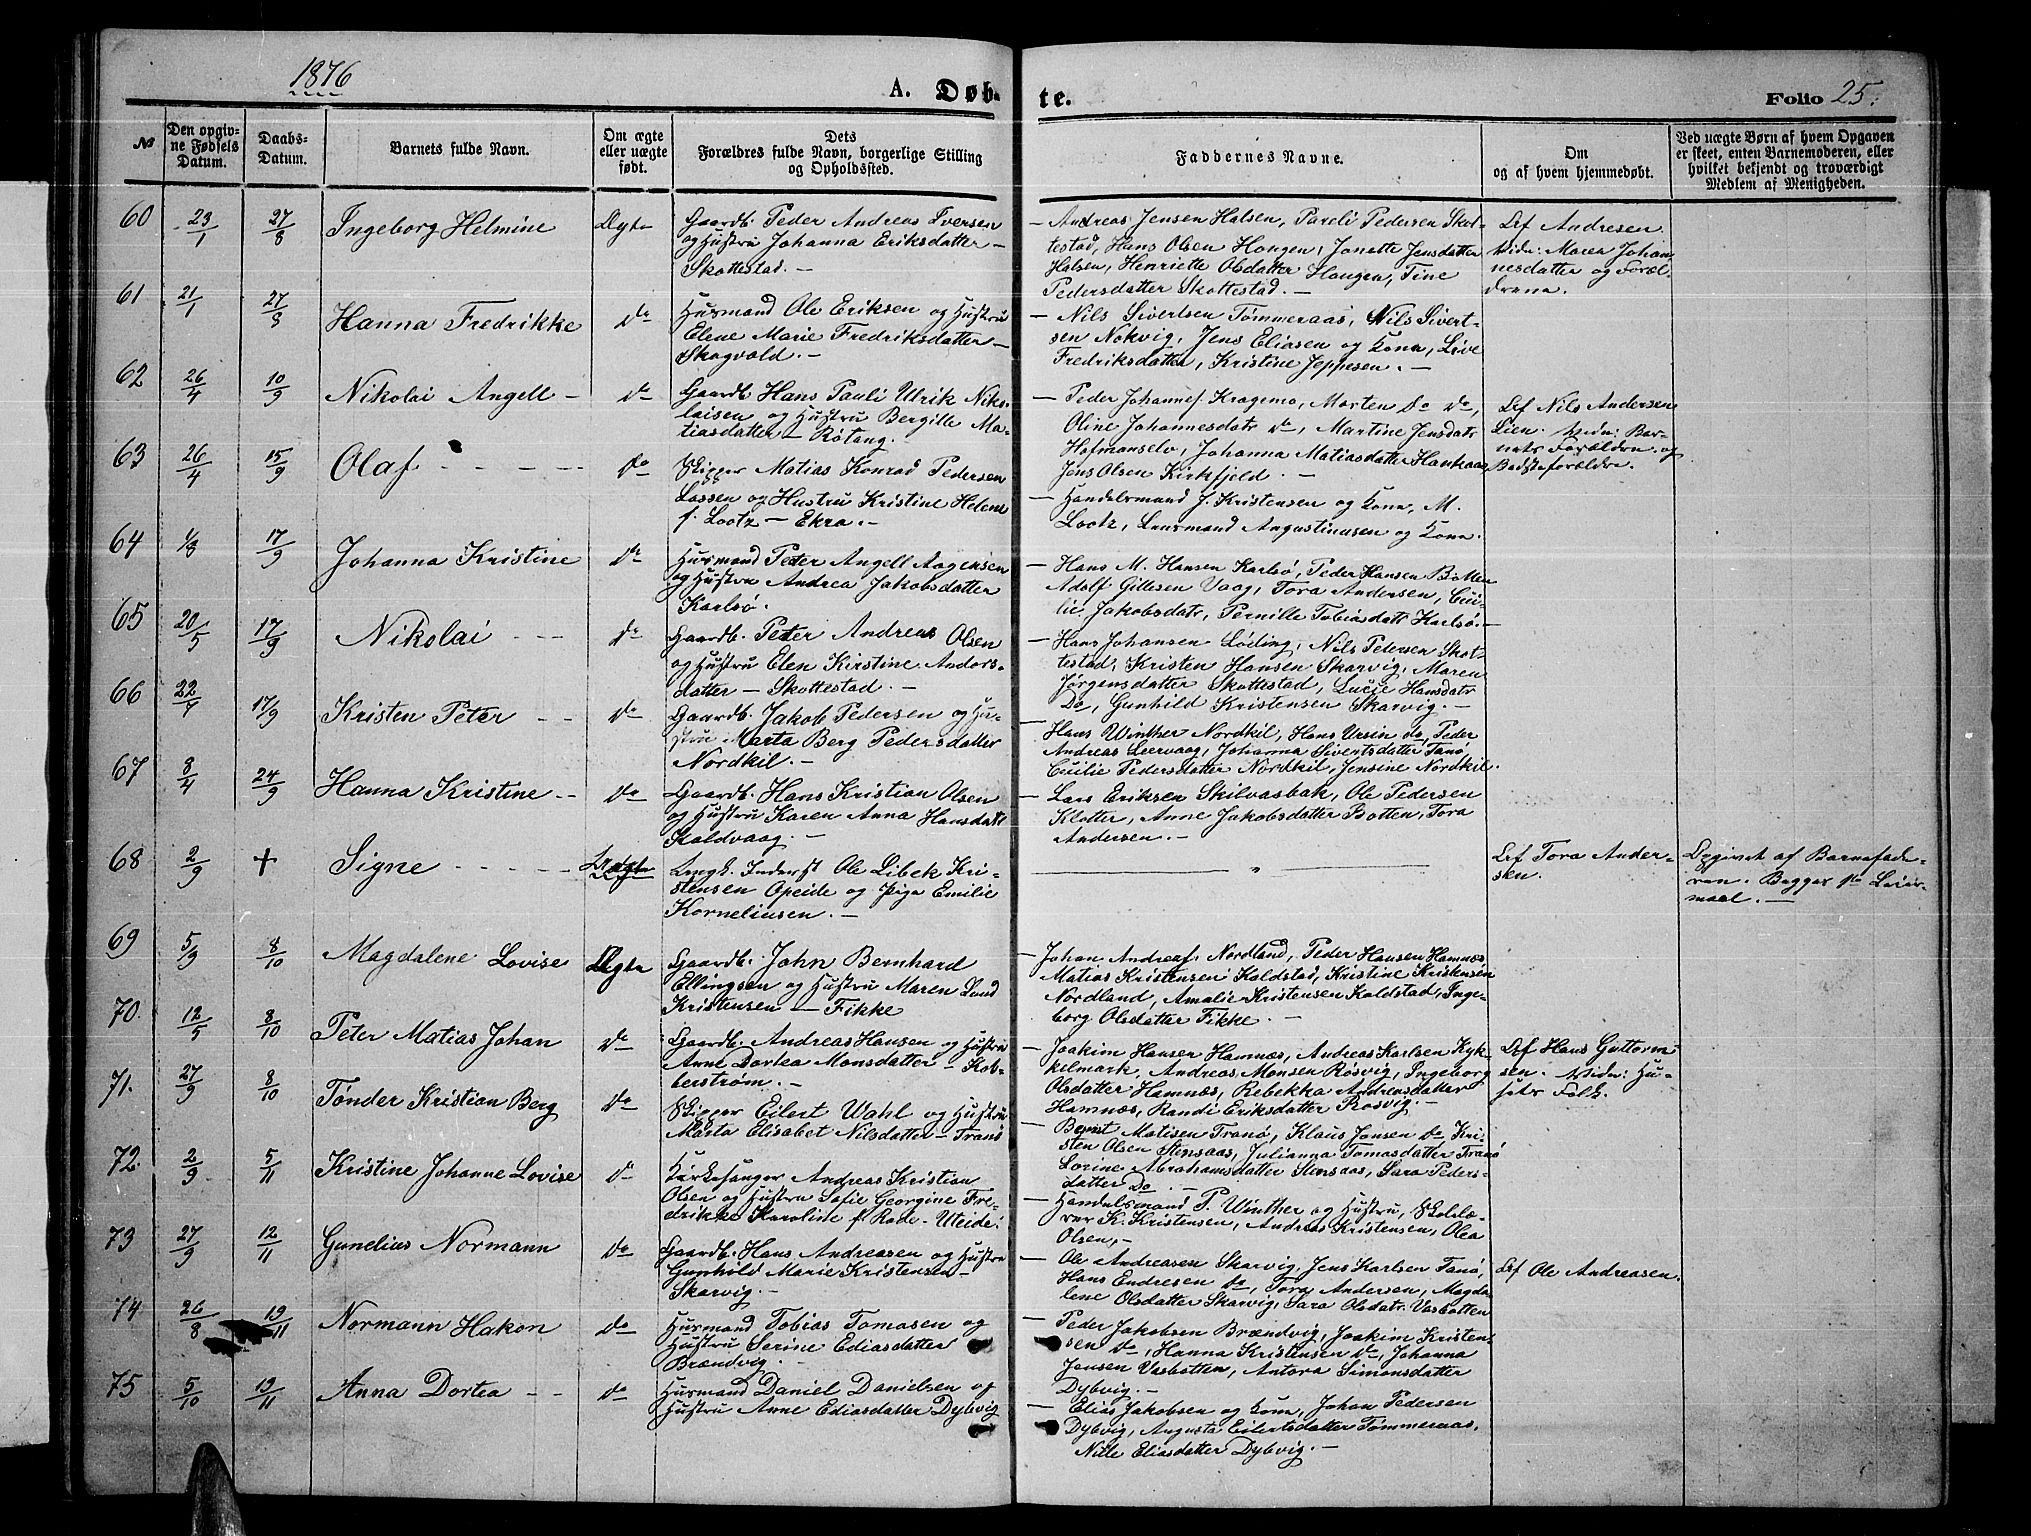 1876
A. Døb-
te.
Folio 25.
№
Den opgiv-
ne Fødsels
Datum.
Daabs-
Datum.
Barnets fulde Navn.
Om ægte
eller uægte
født.
Dets
Forældres fulde Navn, borgerlige Stilling
og Opholdssted.
Faddernes Navne.
Om
og af hvem hjemmedøbt.
Ved uægte Børn af hvem Opgaven
er skeet, enten Barnemoderen, eller
hvilket bekjendt og troværdigt
Medlem af Menigheden.
60 23/1 27/8 Ingeborg Helmine Ægte
Gaardb. Peder Andreas Iversen
og Hustru Johanna Eriksdatter -
Skottestad. -
- Andreas Jensen Halsen, Pareli Pedersen Skot-
testad, Hans Olsen Haugen, Janette Jensdatter
Halsen, Henriette Olsdatter Haugen, Tine
Pedersdatter Skottestad. -
Lef Andresen.
Vidn: Maren Johan-
nesdatter og Foræl-
drene.
61 21/1 27/8 Hanna Fredrikke do
Husmand Ole Eriksen og Hustru
Elene Marie Fredriksdatter -
Skogvold. -
- Nils Sivertsen Tømmeraas, Nils Sivert-
sen Nokvig, Jens Eliasen og Kona, Live
Fredriksdatter, Kristine Jeppesen. -
62 26/4 10/9 Nikolai Angell - do
Gaardb. Hans Pauli Ulrik Niko-
laisen og Hustru Bergille Ma-
tiasdatter - Røtang. -
- Peder Johannes. Kragemo, Morten do do,
Oline Johannesdatr do, Martine Jensdatr
Hofmanselv, Johanna Matiasdatter Haukaas,
Jens Olsen Kirkfjeld. -
Lef Nils Andersen
Lien. Vidn: Bar-
nets Forældre og
Bedsteforældre.
63 26/4 15/9 Olaf - - - - - do
Skipper Matias Konrad Pedersen
Lossen og Hustru Kristine Helene
f. Lootz - Ekra. -
- Handelsmand J. Kristensen og Kona, M.
Lootz, Lensmand Augustinusen og Kona.
64 4/8 17/9 Johanna Kristine do
Husmand Peter Angell Aagensen
og Hustru Andrea Jakobsdatter
Karlsø.
- Hans M. Hansen Karlsø, Peder Hansen Botten
Adolf Gillesen Vaag, Tora Andersen, Ceci-
lie Jakobsdatr, Pernille Tobiasdatr Karlsø. -
65 20/5 17/9 Nikolai - - - do
Gaardb. Peter Andreas Olsen
og Hustru Elen Kirstine Andors-
datter - Skottestad. -
- Hans Johansen Løding, Nils Pedersen Skot-
testad, Kristen Hansen Skarvig, Maren
Jørgensdatter Skottestad, Lucie Hansdatr
Do, Gunhild Kristensen Skarvig. -
66 22/4 17/9 Kristen Peter - - do
Gaardb. Jakob Pedersen og Hu-
stru Marta Berg Pedersdatter
Nordkil. -
- Hans Winther Nordkil, Hans Ursin do, Peder
Andreas Leervaag, Johanna Sivertsdatter Tanø,
Cecilie Pedersdatter Nordkil, Jensine Nordkil.
67 8/4 24/9 Hanna Kristine - - do
Gaardb. Hans Kristian Olsen
og Hustru Karen Anna Hansdatr
Kaldvaag. -
- Lars Eriksen Skilvasbak, Ole Pedersen
Klotter, Anne Jakobsdatter Botten, Tora
Andersen. -
68 2/9 + Signe - - - - - Uægte
Ungk. Inderst Ole Libek Kri-
stensen Opeide og Pige Emilie
Korneliusen. -
"
Lef Tora Ander-
sen.
Opgivet af Barnefade-
ren. Begges 1te Leier-
maal. -
69 5/9 8/10 Magdalene Lovise Ægte
Gaardb. John Bernhard
Ellingsen og Hustru Maren Lund
Kristensen - Fikke
- Johan Andreas. Nordland, Peder Hansen Hamnæs
Matias Kristensen Kaldstad, Kristine Kristensen
Nordland, Amalie Kristensen Kaldstad, Inge-
borg Olsdatter Fikke. -
70. 12/5 8/10 Peter Matias Johan do
Gaardb. Andreas Hansen og Hustru
Anne Dortea Monsdatter - Kob-
berstrøm. -
- Joakim Hansen Hamnæs, Andreas Karlsen Kyk-
kelmark, Andreas Monsen Røsvig, Ingeborg
Olsdatter Hamnæs, Rebekka Andreasdatter
Hamnæs, Randi Eriksdatter Rosvig. -
Lef Hans Guttorm-
sen. Vidn: Hu-
sets Folk.
71. 27/9 8/10 Tønder Kristian Berg do
Skipper Eilert Wahl og Hustru
Marta Elisabet Nilsdatter - Tranø
- Bernt Matisen Tranø, Klaus Jensen do, Kri-
sten Olsen Stensaas, Julianna Tomasdatter Tranø
Lorine Abrahamsdatter Stensaas, Sara Peders-
datter Do. -
72. 2/9 5/11 Kristine Johanne Lovise do
Kirkesanger Andreas Kristian
Olsen og Hustru Sofie Georgine Fre-
drikke Karoline f. Rode - Uteide.
- Handelsmand P. Winther og Hustru, Skolelæ-
rer K. Kristensen, Andreas Kristensen, Olea
Olsen, -
73 27/9 12/11 Gunelius Normann do
Gaardb. Hans Andreasen og Hustru
Gunhild Marie Kristensen -
Skarvig. -
- Ole Andreasen Skarvig, Jens Karlsen Tanø,
Hans Endresen do, Tora Andersen, Magda-
lene Olsdatter Skarvig, Sara Olsdatr. Vasbotten
Lef Ole Andreasen.
74 26/8 19/11 Normann Hakon do
Husmand Tobias Tomasen og
Hustru Serine Ediasdatter
Brændvig. -
- Peder Jakobsen Brændvig, Joakim Kristen-
sen do, Hanna Kristensen do, Johanna
Jensen Vasbotten, Antora Simonsdatter
Dybvig. -
75 5/10 19/11 Anna Dortea - - do
Husmand Daniel Danielsen og
Hustru Anne Ediasdatter Dybvig
- Elias Jakobsen og Kona, Johan Pedersen
Dybvig, Augusta Eilertsdatter Tømmeraas,
Nille Eliasdatter Dybvig. -